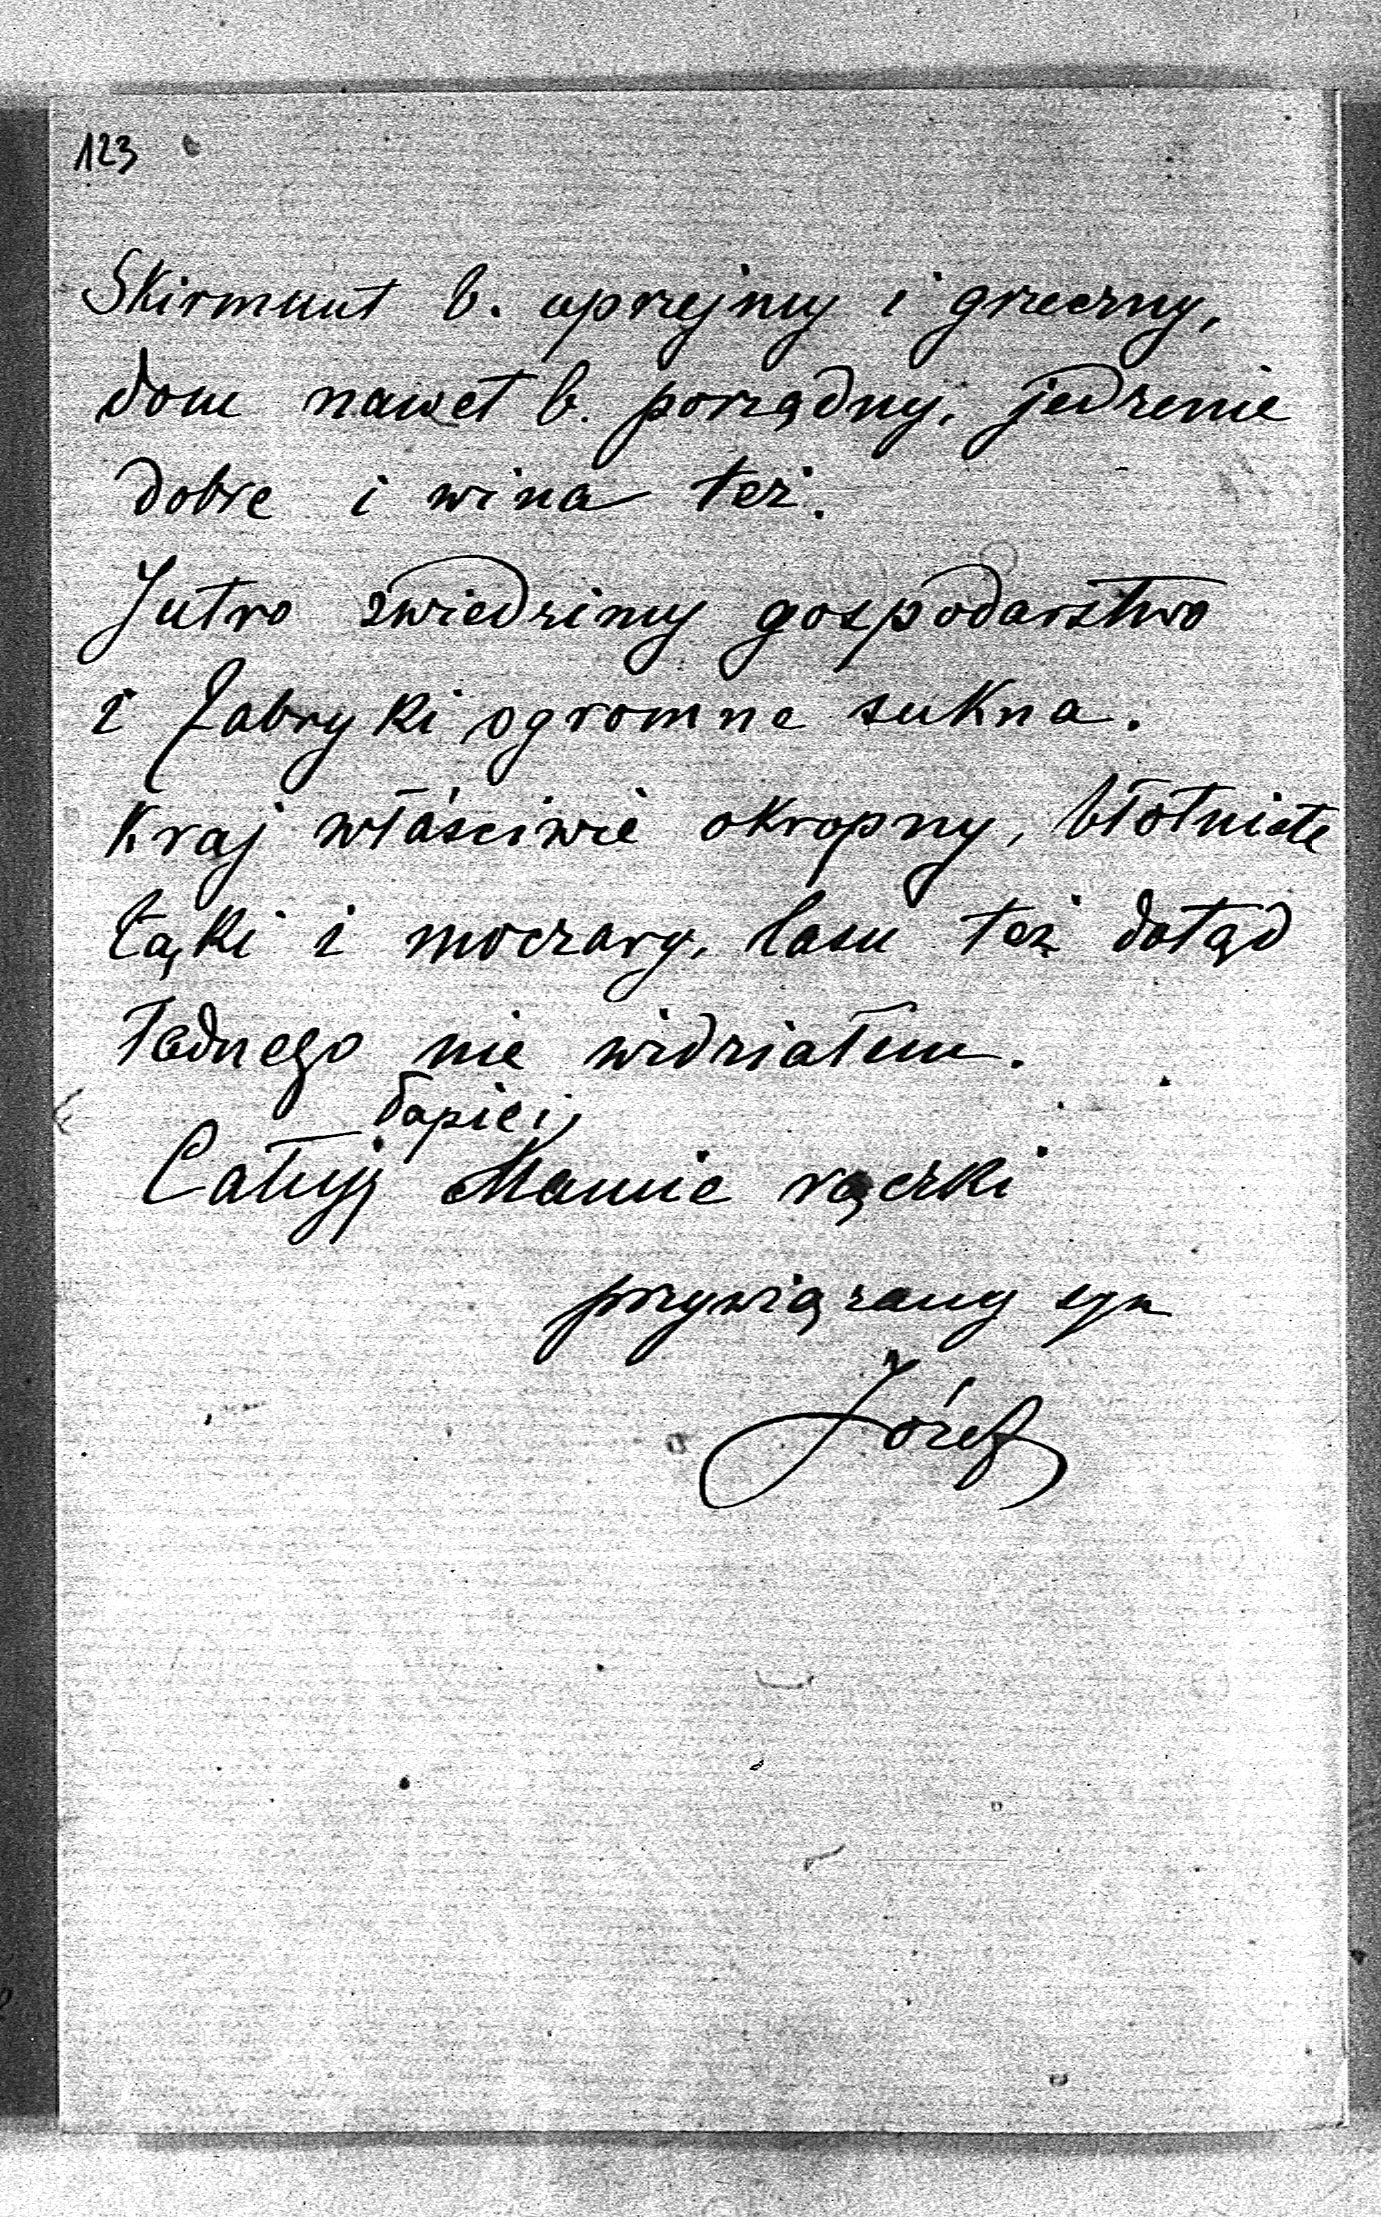 123
Skirmunt b. uprzejmy i grzeczny,
dom nawet b. porządny, jedzenie
dobre i wina też.
Jutro zwiedzimy gospodarstwo
i fabryki ogromne sukna.
Kraj właściwie okropny, błotniste
łąki i moczary, lasu też dotąd
ładnego nie widziałem.
Całuję Mamie rączki
przywiązany syn
Józef